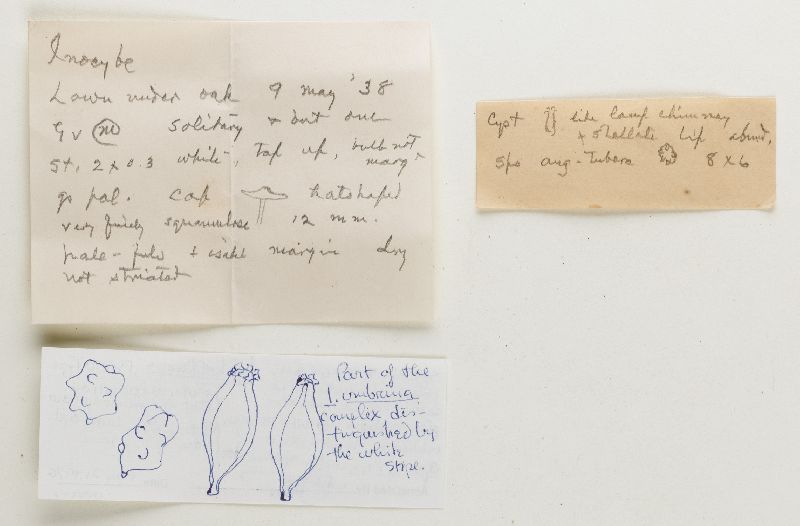 Inocybe
Lawn under oak 9 May '38
Gv no solitary + but one
St. 2 x 0.3 white, tap up, bulb not
marg
gs pal. cap hatshaped
very finely squamulose 12 mm.
pale - + margin dry
not striated
Cyst like lamp chimney
+ stellate tip abund,
Spo ang-tubero 8 x 6
Part of the
I. umbrina
complex dis-
tinguished by
the white
stipe.